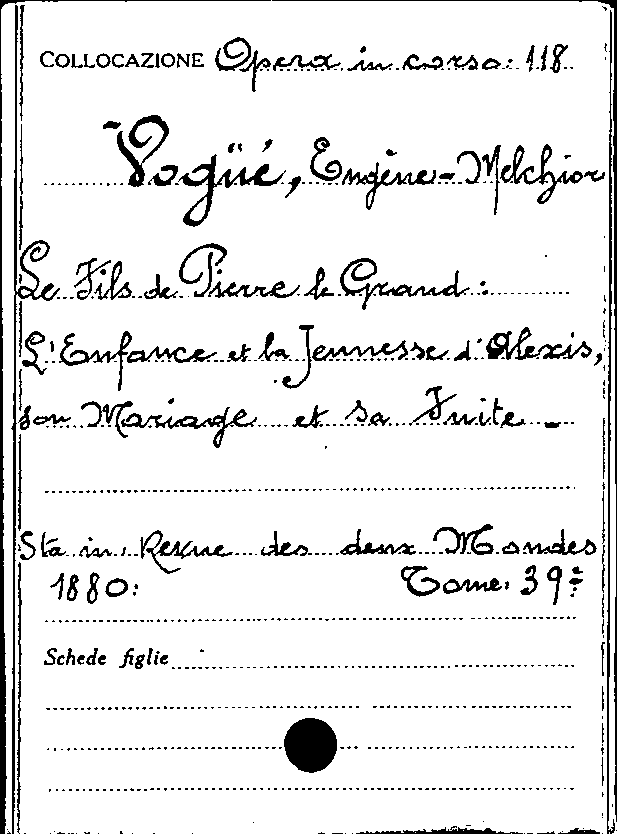 COLLOCAZIONE Opera in corso: 118
Vogüé, Eugène-Melchior
Le Fils de Pierre le Grand:
L'Enfance et la Jeunesse d'Alexis,
son Mariage et sa Fuite -
Sta in, Revue des deux Mondes
1880: Tome: 39º
Schede figlie